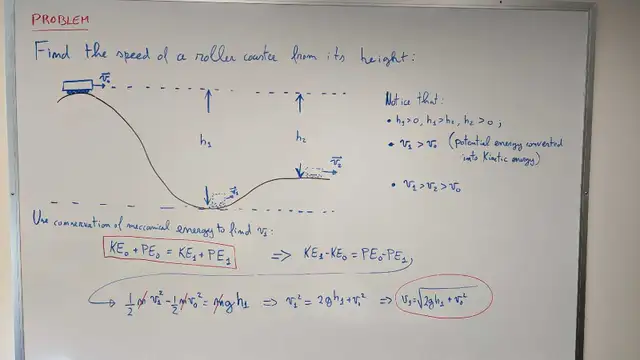 PROBLEM
Find the speed of a roller coaster from its height:
v₀
h₁
h₂
v₁
v₂
Notice that:
• h₁>0, h₁>h₂, h₂>0;
• v₁ > v₀ (potential energy converted
into Kinetic energy)
• v₁ > v₂ > v₀
Use conservation of meccanical energy to find v₁:
KE₀ + PE₀ = KE₁ + PE₁ => KE₁-KE₀ = PE₀-PE₁
1/2 m v₁² - 1/2 m v₀² = m g h₁ => v₁² = 2gh₁+v₀² => v₁=√(2gh₁+v₀²)